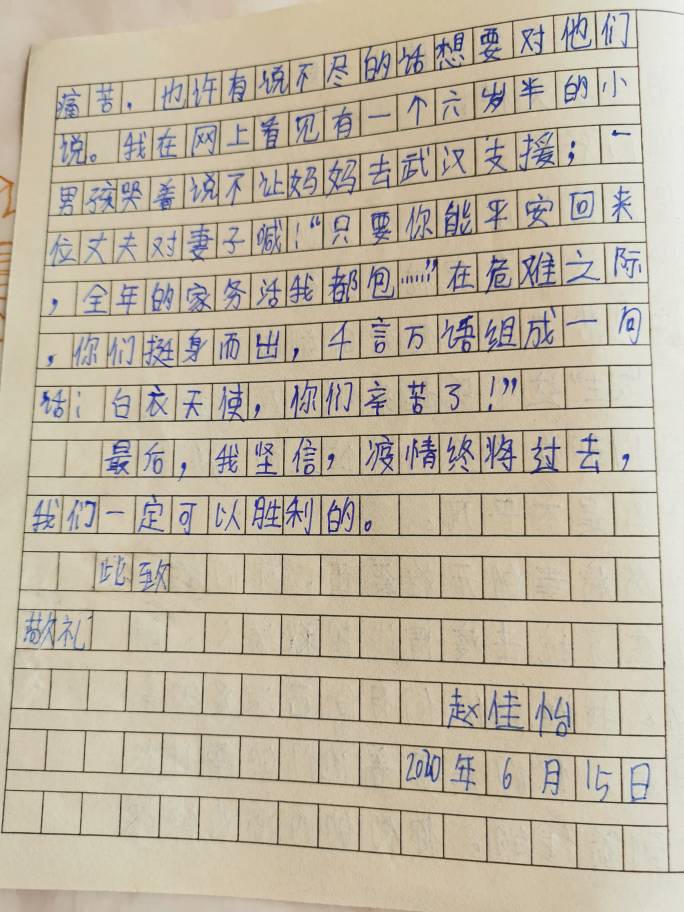 痛苦，也许有说不尽的话想要对他们
说。我在网上看见有一个六岁半的小
男孩哭着说不让妈妈去武汉支援；一
位丈夫对妻子喊！“只要你能平安回来
，全年的家务活我都包……”在危难之际
，你们挺身而出，千言万语组成一句
话：白衣天使，你们辛苦了！”
最后，我坚信，疫情终将过去，
我们一定可以胜利的。
此致
敬礼
赵佳怡
2020年6月15日